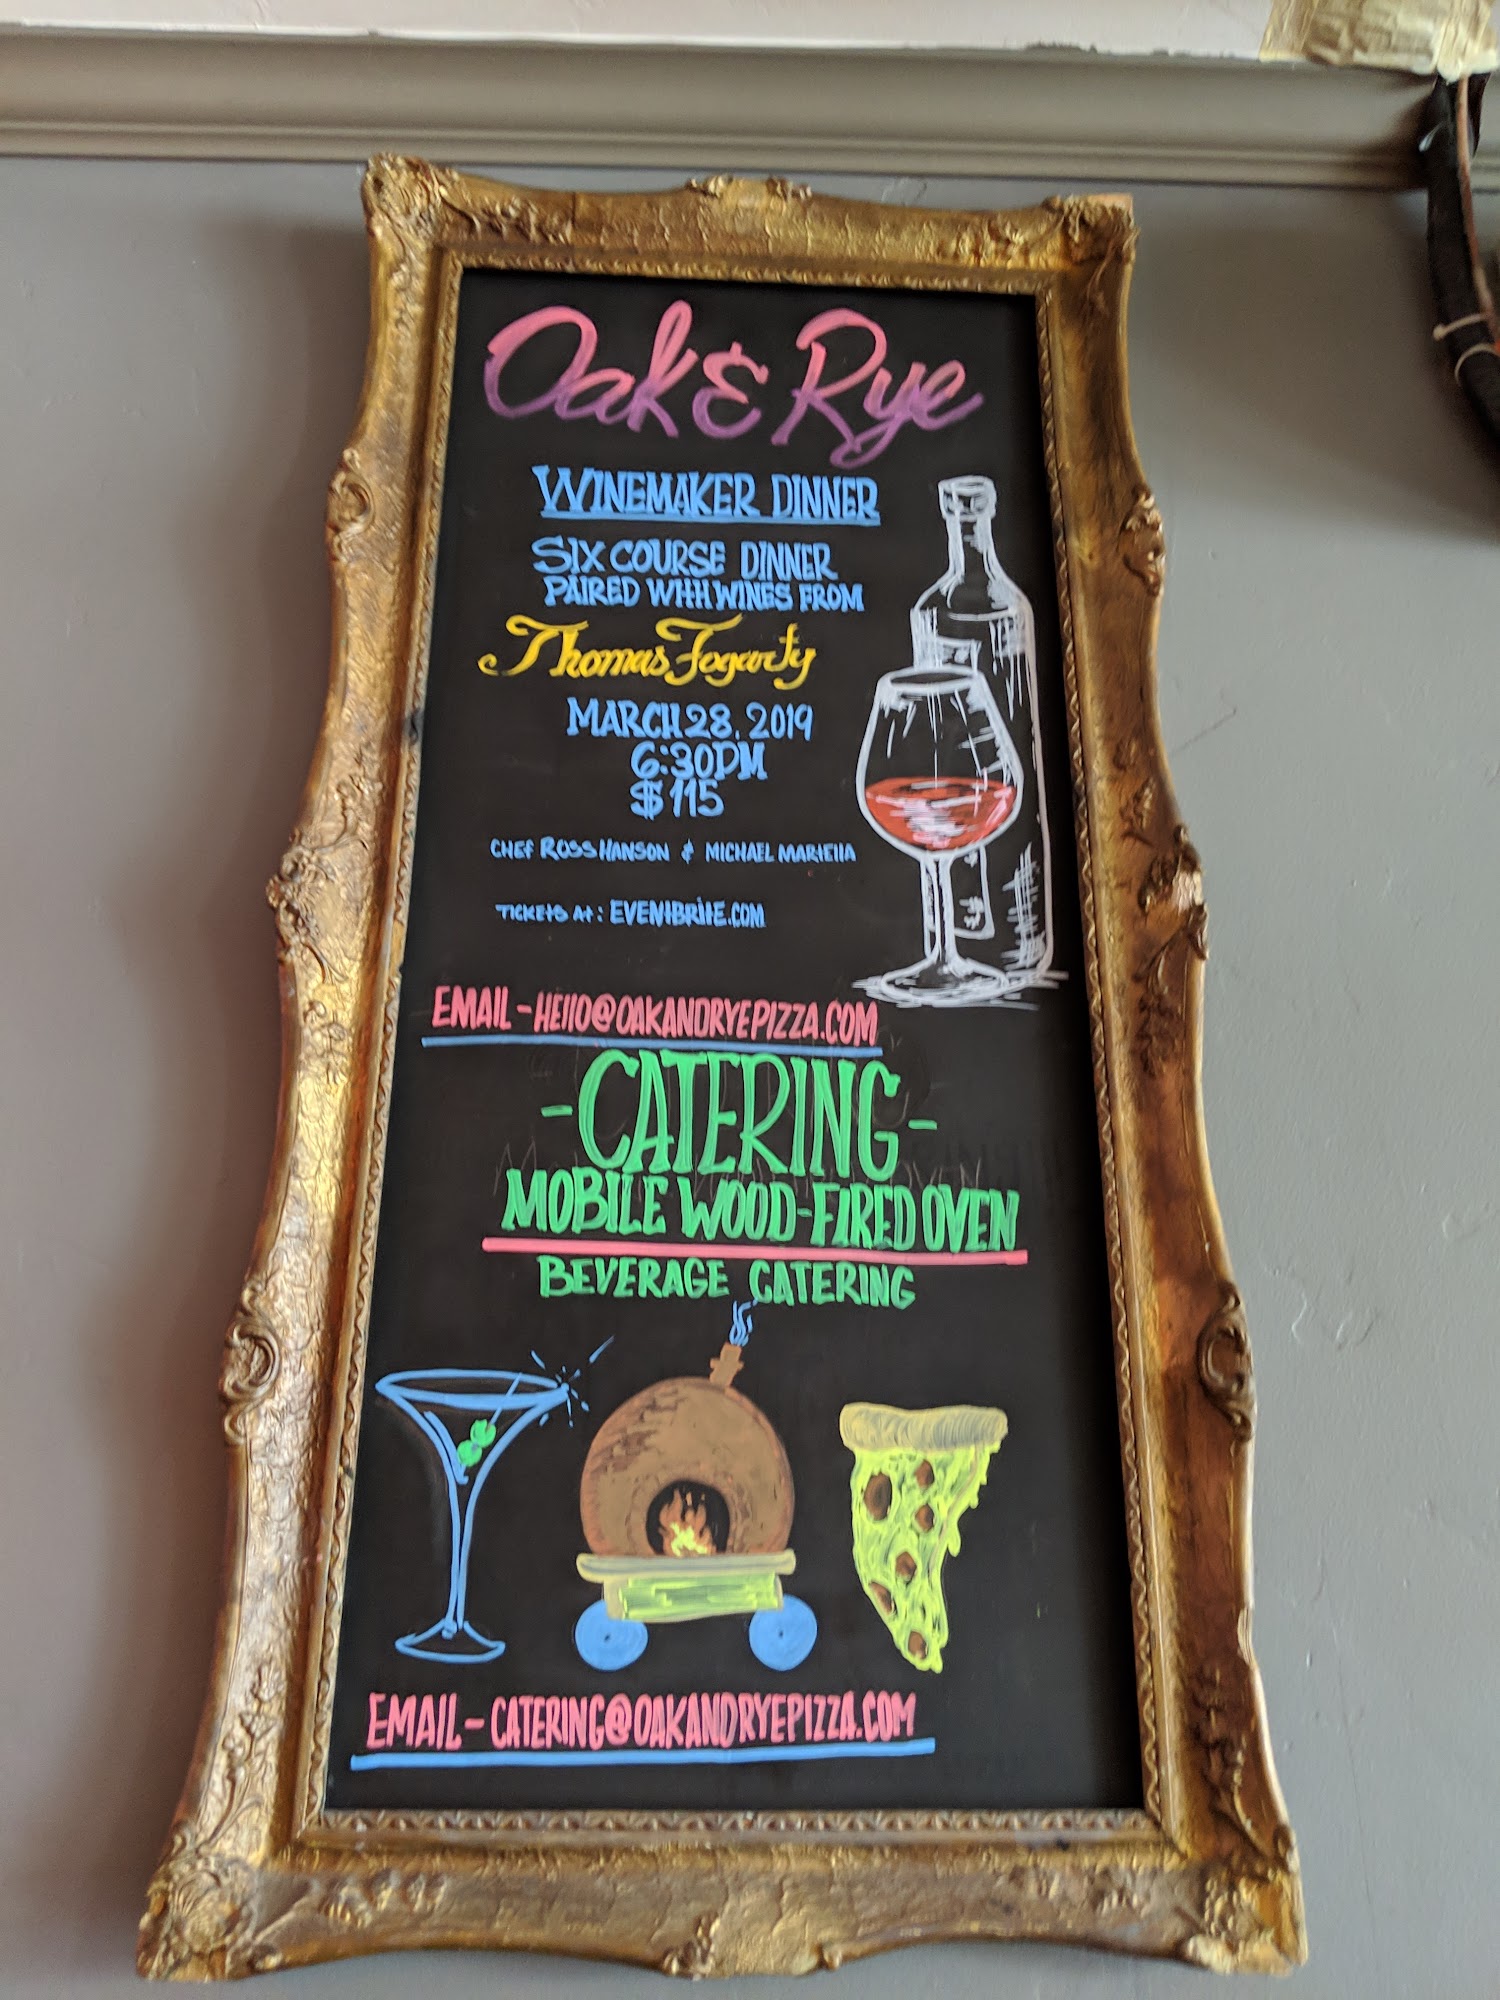 Oak & Rye
WINEMAKER DINNER
SIX COURSE DINNER
PAIRED WITH WINES FROM
Thomas Fogarty
MARCH 28, 2019
6:30PM
$115
CHEF ROSS HANSON & MICHAEL MARIELLA
TICKETS AT: EVENTBRITE.COM
EMAIL - HELLO@OAKANDRYEPIZZA.COM
- CATERING -
MOBILE WOOD-FIRED OVEN
BEVERAGE CATERING
EMAIL - CATERING@OAKANDRYEPIZZA.COM